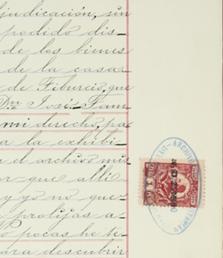 judicación, sin
podido dis-
de los bienes
de la casa
de Tiburcio, que
Don José
mi derecho, pa
a la exhibi-
el archivo mis
r que allí
y yo no que-
prolijas a-
pocas he te
para descubrir